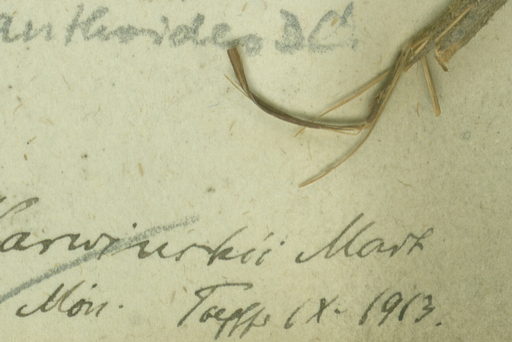 anthoides DC.
Karwinskii Mart
Mön. Toepffer IX. 1913.